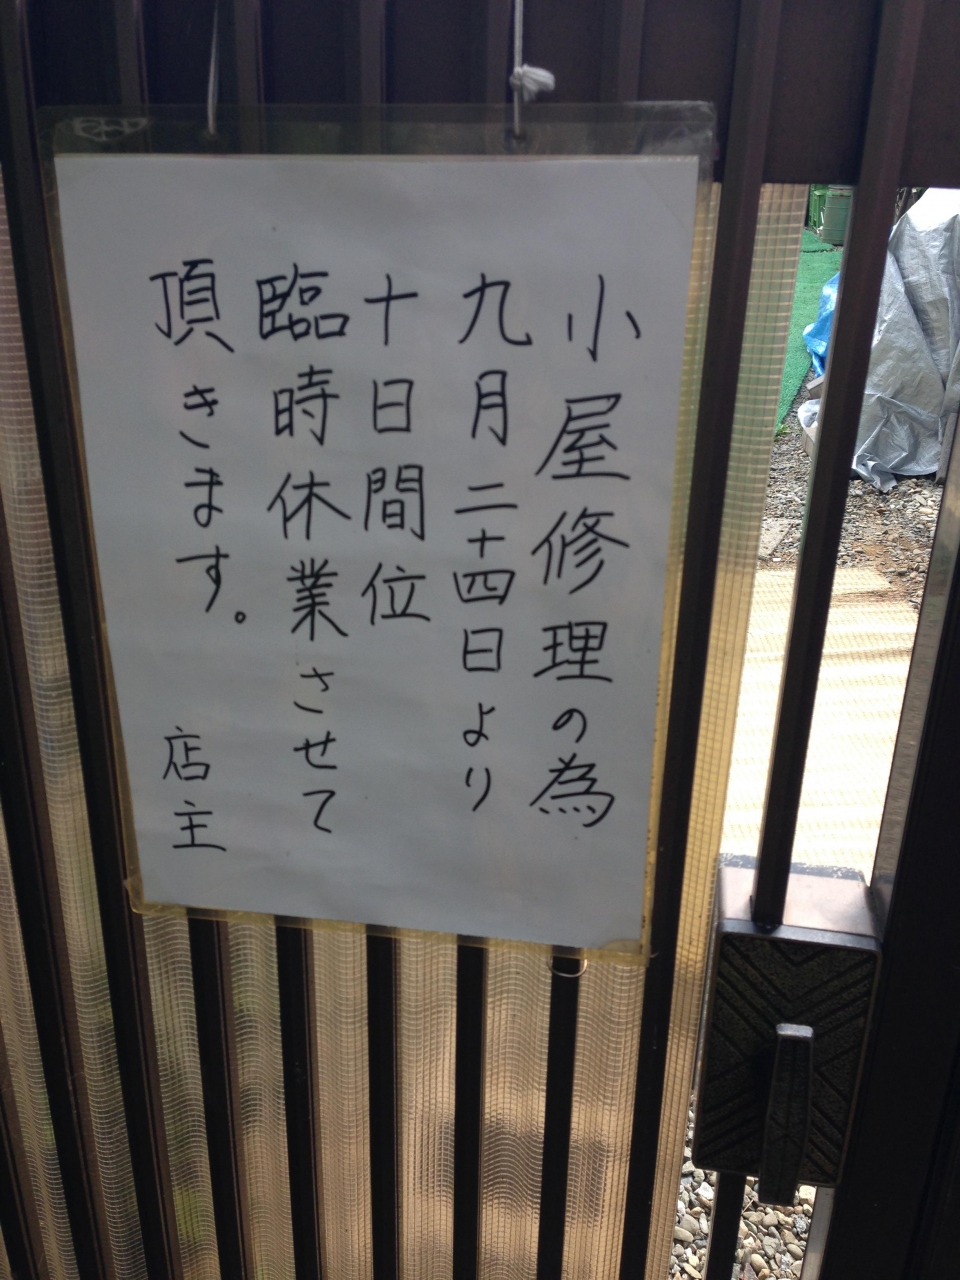 小屋修理の為
九月二十四日より
十日間位
臨時休業させて
頂きます。 店主